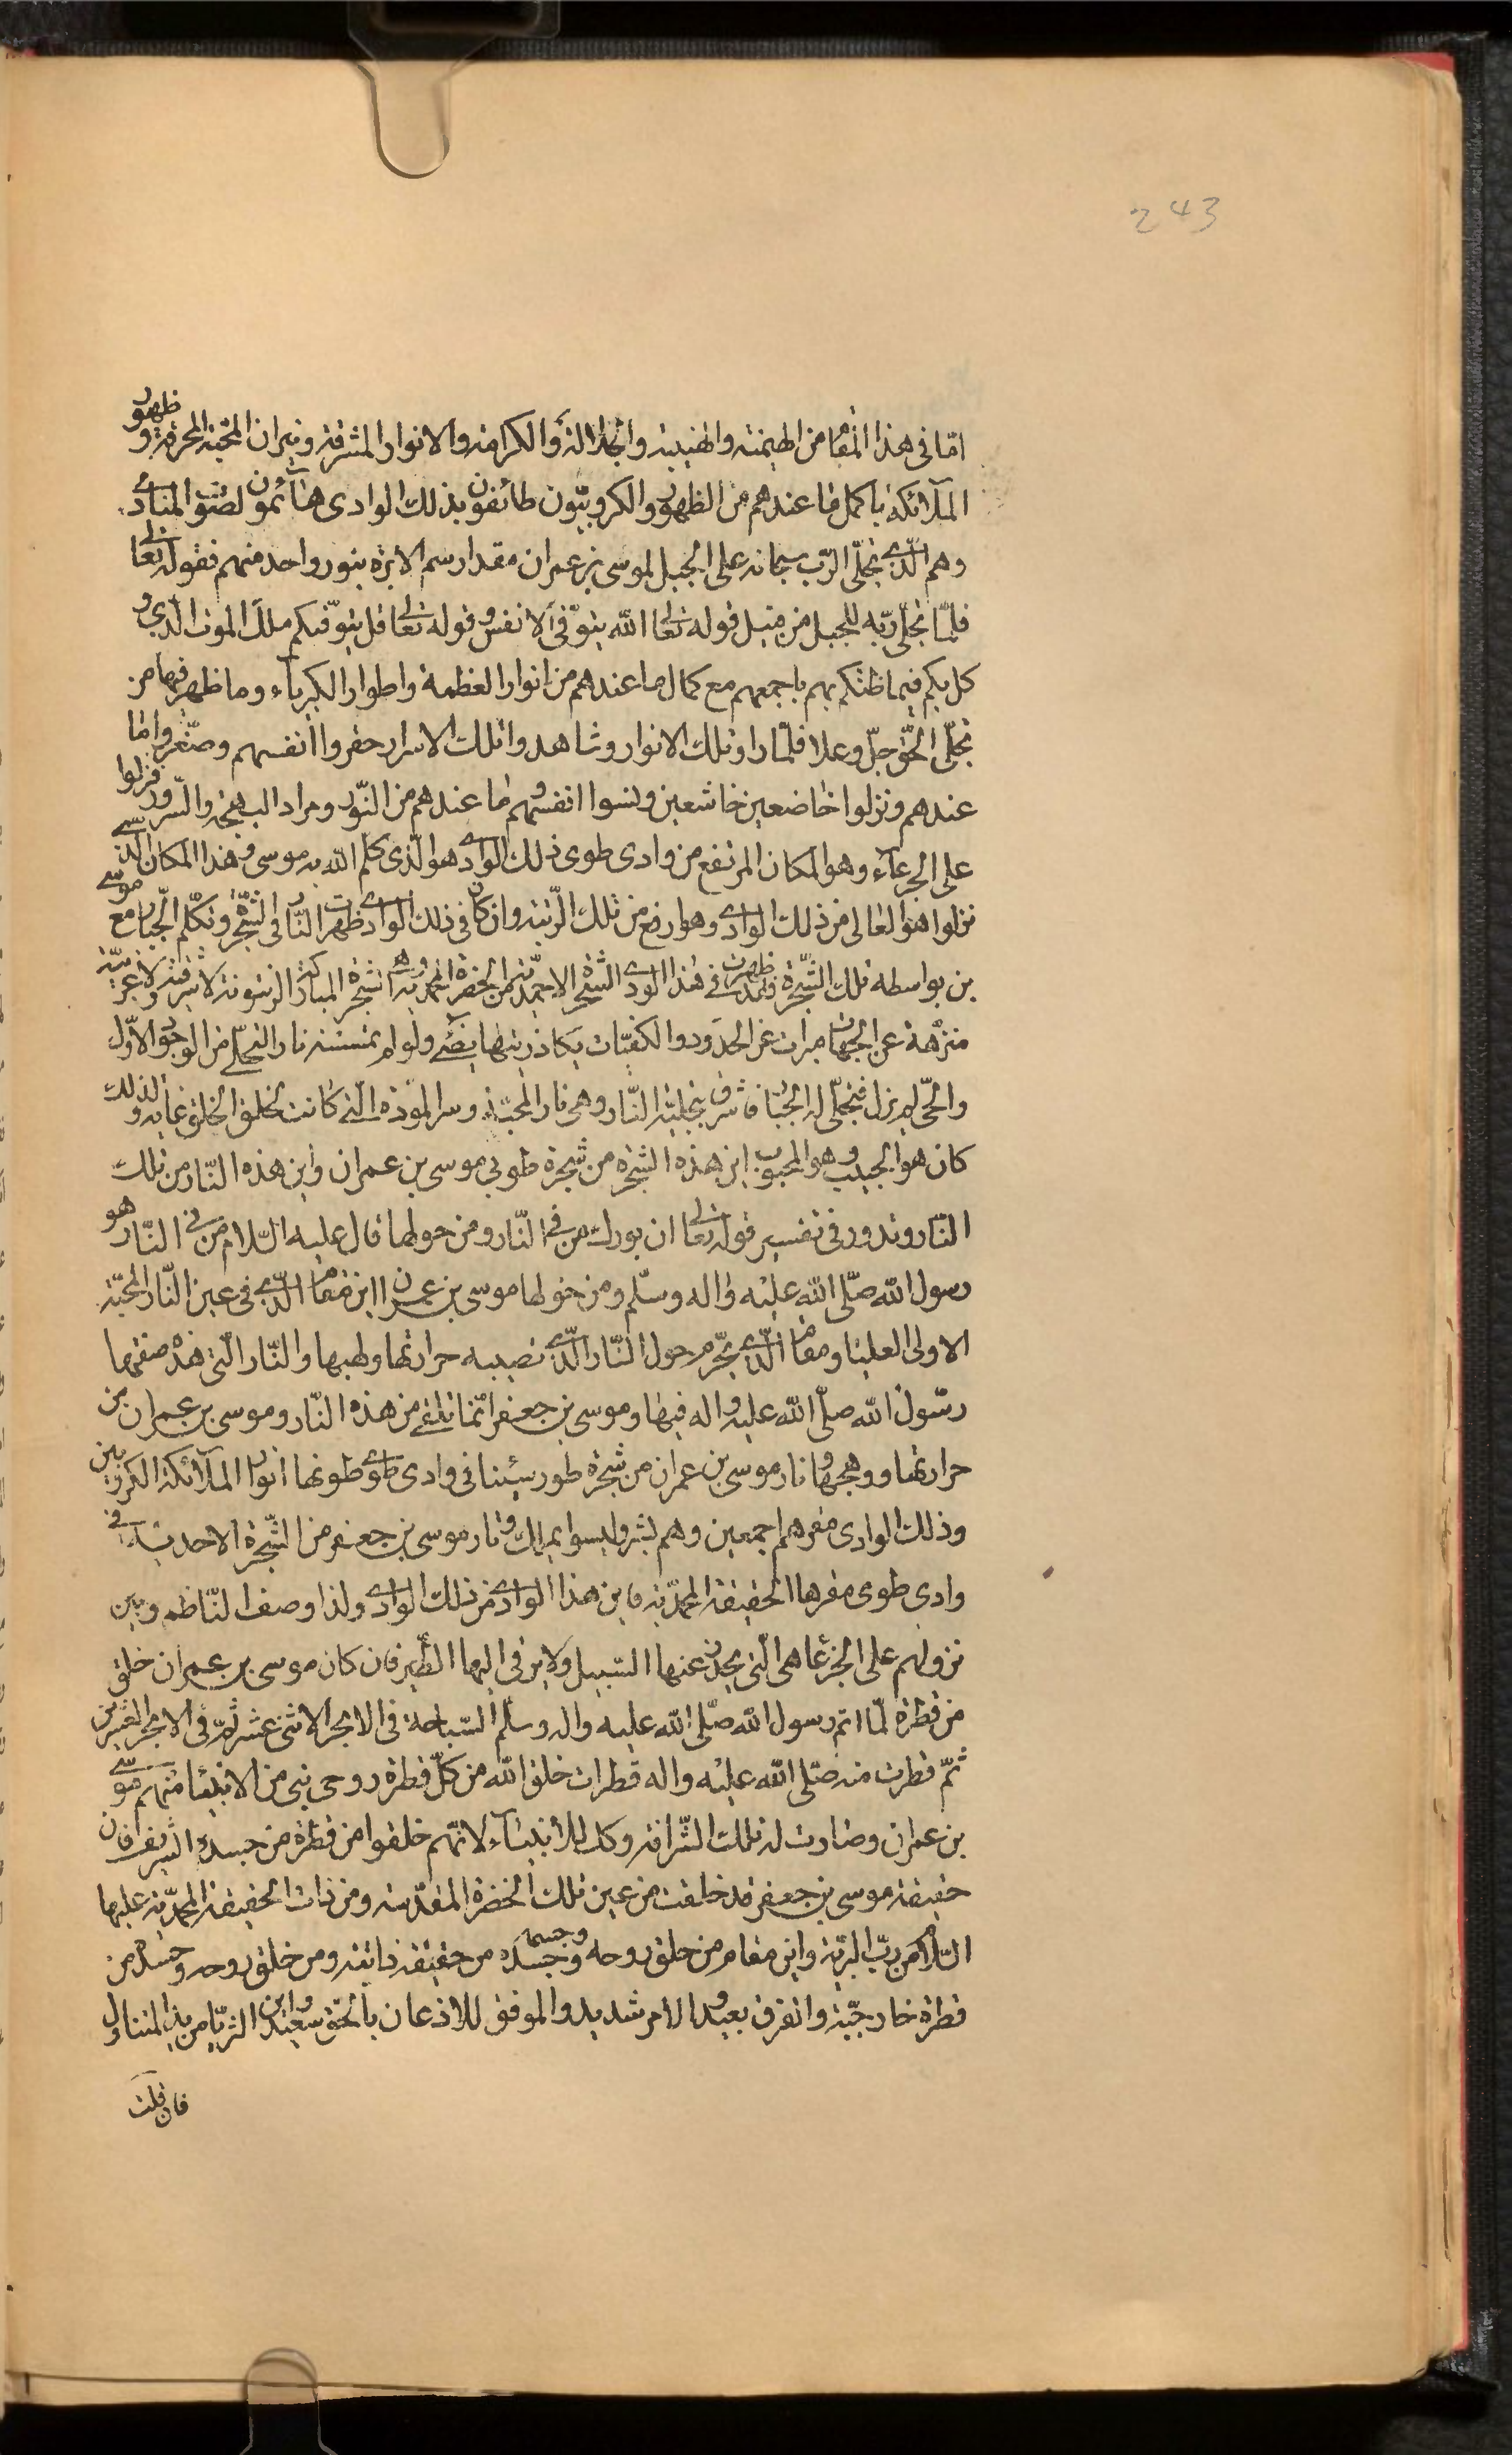 243
اما فى هذا المقام من الهيمنة والهيبة والجلالة والكرامة والانوار المشرقة ونيران المحبة المحرقة وظهور
الملآئكة باكمل ما عندهم من الظهور والكروبيّون طائفون بذلك الوادى هآئمون لصوت المنادى
وهم الّذى تجلّى الرّب سبحانه على الجبل لموسى بن عمران مقدار سم الابرة بنور واحد منهم فقوله تعالى
فلمّا تجلّى ربّه للجبل من قبيل قوله تعالى الله يتوفّى الانفس وقوله تعالى قل يتوفّيكم ملك الموت الّذى و
كل بكم فيما ظنكم بهم باجمعهم مع كمال ما عندهم من انوار العظمة واطوار الكبرياء وما ظهر فيها من
تجلّى الحّق جلّ وعلا فلمّا راو تلك الانوار وشاهدوا تلك الاسرار حقروا انفسهم وصغّروا ما
عندهم ونزلوا خاضعين خاشعين ونسوا انفسهم وما عندهم من النّور ومراد البهجة والسّرور فنزلوا
على الجرعآء وهو المكان المرتفع من وادى طوى ذلك الوادى هو الّذى كلم الله به موسى وهذا المكان الّذى
نزلوا هو العالى من ذلك الوادى وهو ارفع من تلك الرّتبة وان كان فى ذلك الوادى ظهرت النّار فى الشّجرة وتكلّم الجبّار مع موسى
بن بواسطه تلك الشّجرة فقد ظهرت فى هذا الوادى الشّجرة الاحمديّة من الحضرة المحمديّة وهى الشّجرة المباركة الزيتونة لا شرقية ولا غربيّة
منزّهة عن الجهات مبرات عن الحدود والكيفيّات يكاد زيتها يضئ ولو لم تمسسه نار التجلّى من الوجود الاوّل
والحّى لم يزل فتجلّى له الجبّار فاشرق بتجليه النّار وهى نار المحبّة وسر المودّة الّتى كانت لخلق الخلق غاية ولذلك
كان هو الحبيب وهو المحبوب اين هذه الشّجرة من شجرة طوبى موسى بن عمران واين هذه النّار من تلك
النّار وقد ورد فى تفسير قوله تعالى ان بورك من فى النّار ومن حولها قال عليه السّلام من فى النّار هو
رسول الله صلّى الله عليه واله وسلّم ومن حولها موسى بن عمران اين مقام الّذى فى عين النّار المحبّة
الاولى العليا ومقام الّذى تحرّم حول النّار الّذى تصيبه حرارتها ولهبها والنّار الّتى هذه صفتها
رسول الله صلّى الله عليه واله فيها وموسى بن جعفر انّما تلقى من هذه النّار وموسى بن عمران من
حرارتها ووهجها ونار موسى بن عمران من شجرة طور سينا فى وادى طوى طونها انوار الملآئكة الكروبين
وذلك الوادى مقرهم اجمعين وهم بشر وليسوا بملك ونار موسى بن جعفر من الشّجرة الاحديّة فى
وادى طوى مقرها الحقيقة المحمديّة فاين هذا الوادى من ذلك الوادى ولذا وصف النّاظم وبين
نزولهم على الجرعا هى الّتى يحدر عنها السّبيل ولا يرقى اليها الطّير فان كان موسى بن عمران خلق
من قطرة لمّا اتم رسول الله صلّى الله عليه واله وسلّم السّباحة فى الابحر الاثنى عشر ثمّ فى الابحر العشرين
ثمّ قطرت منه صلّى الله عليه واله قطرات خلق الله من كلّ قطرة روحى نبى من الانبيا منهم موسى
بن عمران وصارت له تلك الشّرافة وكل للانبيآء لانّهم خلقوا من قطرة من جسده الشريف فان
حقيقة موسى بن جعفر قد خلقت من عين تلك الحضرة المقدّسة ومن ذات الحقيقة المحمّديّة عليها
السّلام من ربّ البريّة واين مقام من خلق روحه وجسده وجسمه من حقيقة ذاتيته ومن خلق روحه وجسده من
قطرة خارجيّة والفرق بعيد والامر شديد والموفق للاذعان بالحّق سعيد واين الثريّا من يد المتناول
فان قلت